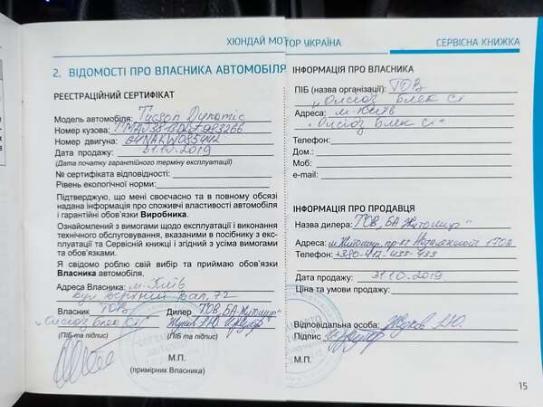 ХЮНДАЙ МОТОР УКРАЇНА
СЕРВІСНА КНИЖКА
2. ВІДОМОСТІ ПРО ВЛАСНИКА АВТОМОБІЛЯ
РЕЄСТРАЦІЙНИЙ СЕРТИФІКАТ
Модель автомобіля: Tucson Dynamic
Номер кузова:
Номер двигуна:
Дата продажу: 31.10.2019
(Дата початку гарантійного терміну експлуатації)
№ сертифіката відповідності:
Рівень екологічної норми:
Підтверджую, що мені своєчасно та в повному обсязі
надана інформація про споживчі властивості автомобіля
і гарантійні обов'язки Виробника.
Ознайомлений з вимогами щодо експлуатації і виконання
технічного обслуговування, вказаними в посібнику з екс-
плуатації та Сервісній книжці і згідний з усіма вимогами
та обов'язками.
Я свідомо роблю свій вибір та приймаю обов'язки
Власника автомобіля.
Адреса Власника: м. Київ
вул Верхній Вал, 72
Власник ТОВ Дилер ТОВ „БА Житомир"
Блек Сі" Жуков
(ПІБ та підпис) (ПІБ та підпис)
М.П.
(примірник Власника)
ІНФОРМАЦІЯ ПРО ВЛАСНИКА
ПІБ (назва організації): ТОВ
Блек Сі"
Адреса: м. Київ
Блек Сі"
Телефон:
Дом.:
Моб:
e-mail:
ІНФОРМАЦІЯ ПРО ПРОДАВЦЯ
Назва дилера: ТОВ „БА Житомир"
Адреса: м. Житомир пр-т Незалежності
Телефон:
Дата продажу: 31.10.2019
Ціна та умови продажу:
Відповідальна особа: Жуков
Підпис
М.П.
15